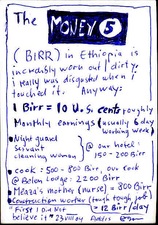 The MONEY 5
(BIRR) in Ethiopia is
incredibly worn out / dirty.
I really was disgusted when I
touched it. Anyway:
1 Birr = 10 U.S. cents roughly
Monthly earnings (usually 6 day
working week)
Night guard
Servant
cleaning woman
@ our hotel:
150-200 Birr
COOK: 500-800 Birr, our Cook
@ Belen Lodge: 2200 Birr
Meaza's mother (nurse) = 800 Birr
Construction worker (tough tough job)
First I did not = 12 Birr/day
believe it 23 VIII 07 Addis